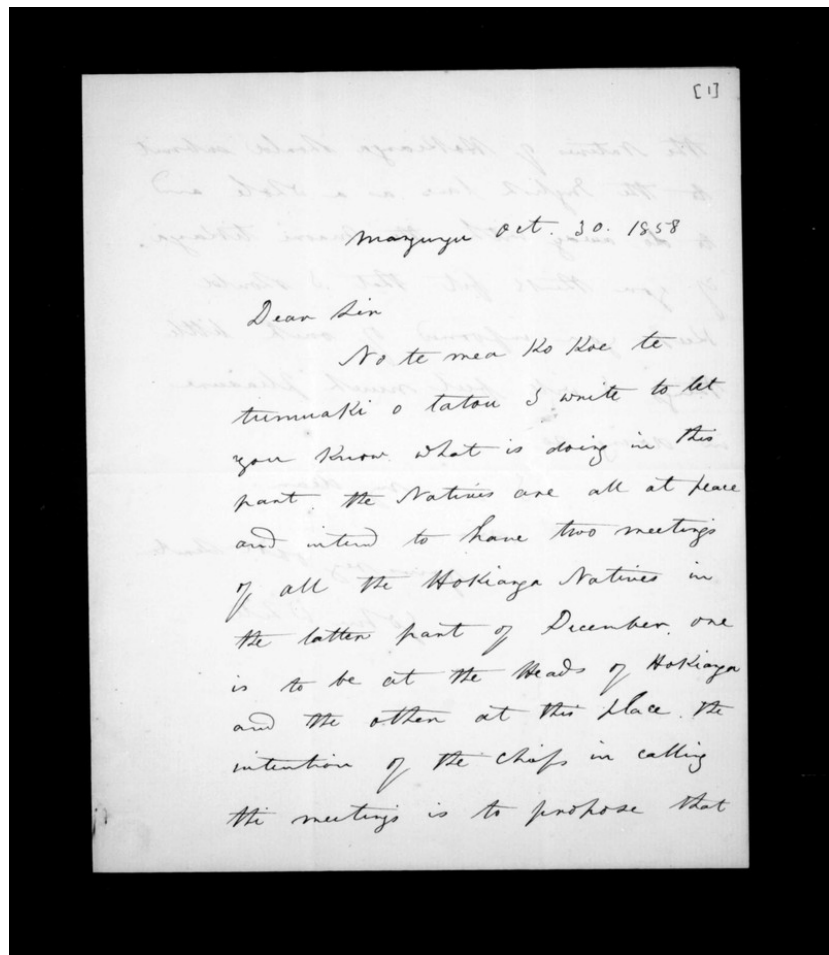 [1]
Mangungu Oct. 30. 1858
Dear Sir
No te mea Ko Koe te
tumuaki o tatou I write to let
you Know what is doing in this
part, the Natives are all at peace
and intend to have two meetings
of all the Hokianga Natives in
the latter part of December, one
is to be at the Heads of Hokianga
and the other at this place. the
intention of the chiefs in calling
the meetings is to propose that